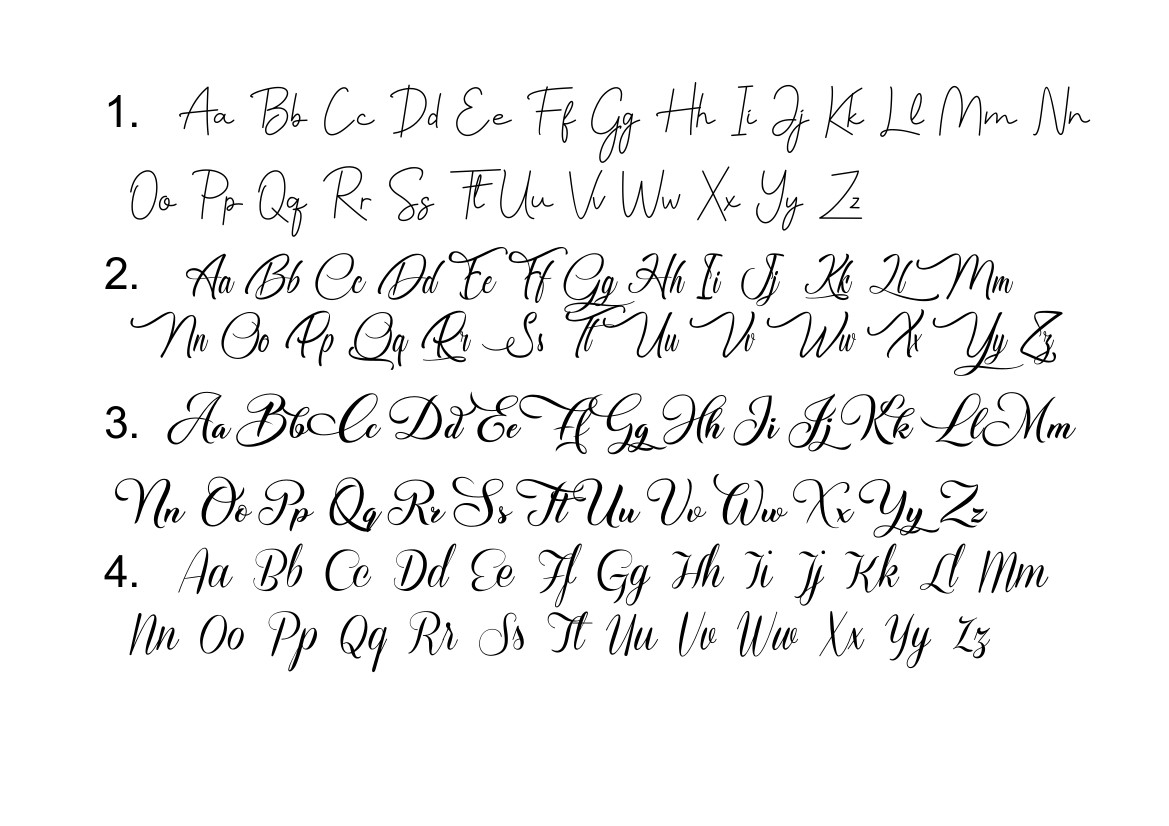 1. Aa Bb Cc Dd Ee Ff Gg Hh Ii Jj Kk Ll Mm Nn
Oo Pp Qq Rr Ss Tt Uu Vv Ww Xx Yy Zz
2. Aa Bb Cc Dd Ee Ff Gg Hh Ii Jj Kk Ll Mm
Nn Oo Pp Qq Rr Ss Tt Uu Vv Ww Xx Yy Zz
3. Aa Bb Cc Dd Ee Ff Gg Hh Ii Jj Kk Ll Mm
Nn Oo Pp Qq Rr Ss Tt Uu Vv Ww Xx Yy Zz
4. Aa Bb Cc Dd Ee Ff Gg Hh Ii Jj Kk Ll Mm
Nn Oo Pp Qq Rr Ss Tt Uu Vv Ww Xx Yy Zz